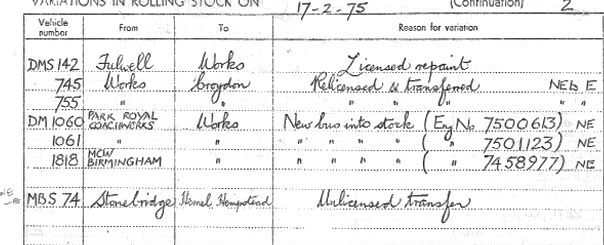 VARIATIONS IN ROLLING STOCK ON 17-2-75 (Continuation) 2
Vehicle number From To Reason for variation
DMS 142 Fulwell Works Licensed repaint
745 Works Croydon Relicensed & transferred NEb E
755 " " " " " " "
DM 1060 PARK ROYAL COACHWORKS Works New bus into stock (Eng No 7500613) NE
1061 " " " " " " ( " 7501123) NE
1818 MCW BIRMINGHAM " " " " " ( " 7458977) NE
NE MBS 74 Stonebridge Hemel Hempstead Unlicensed transfer